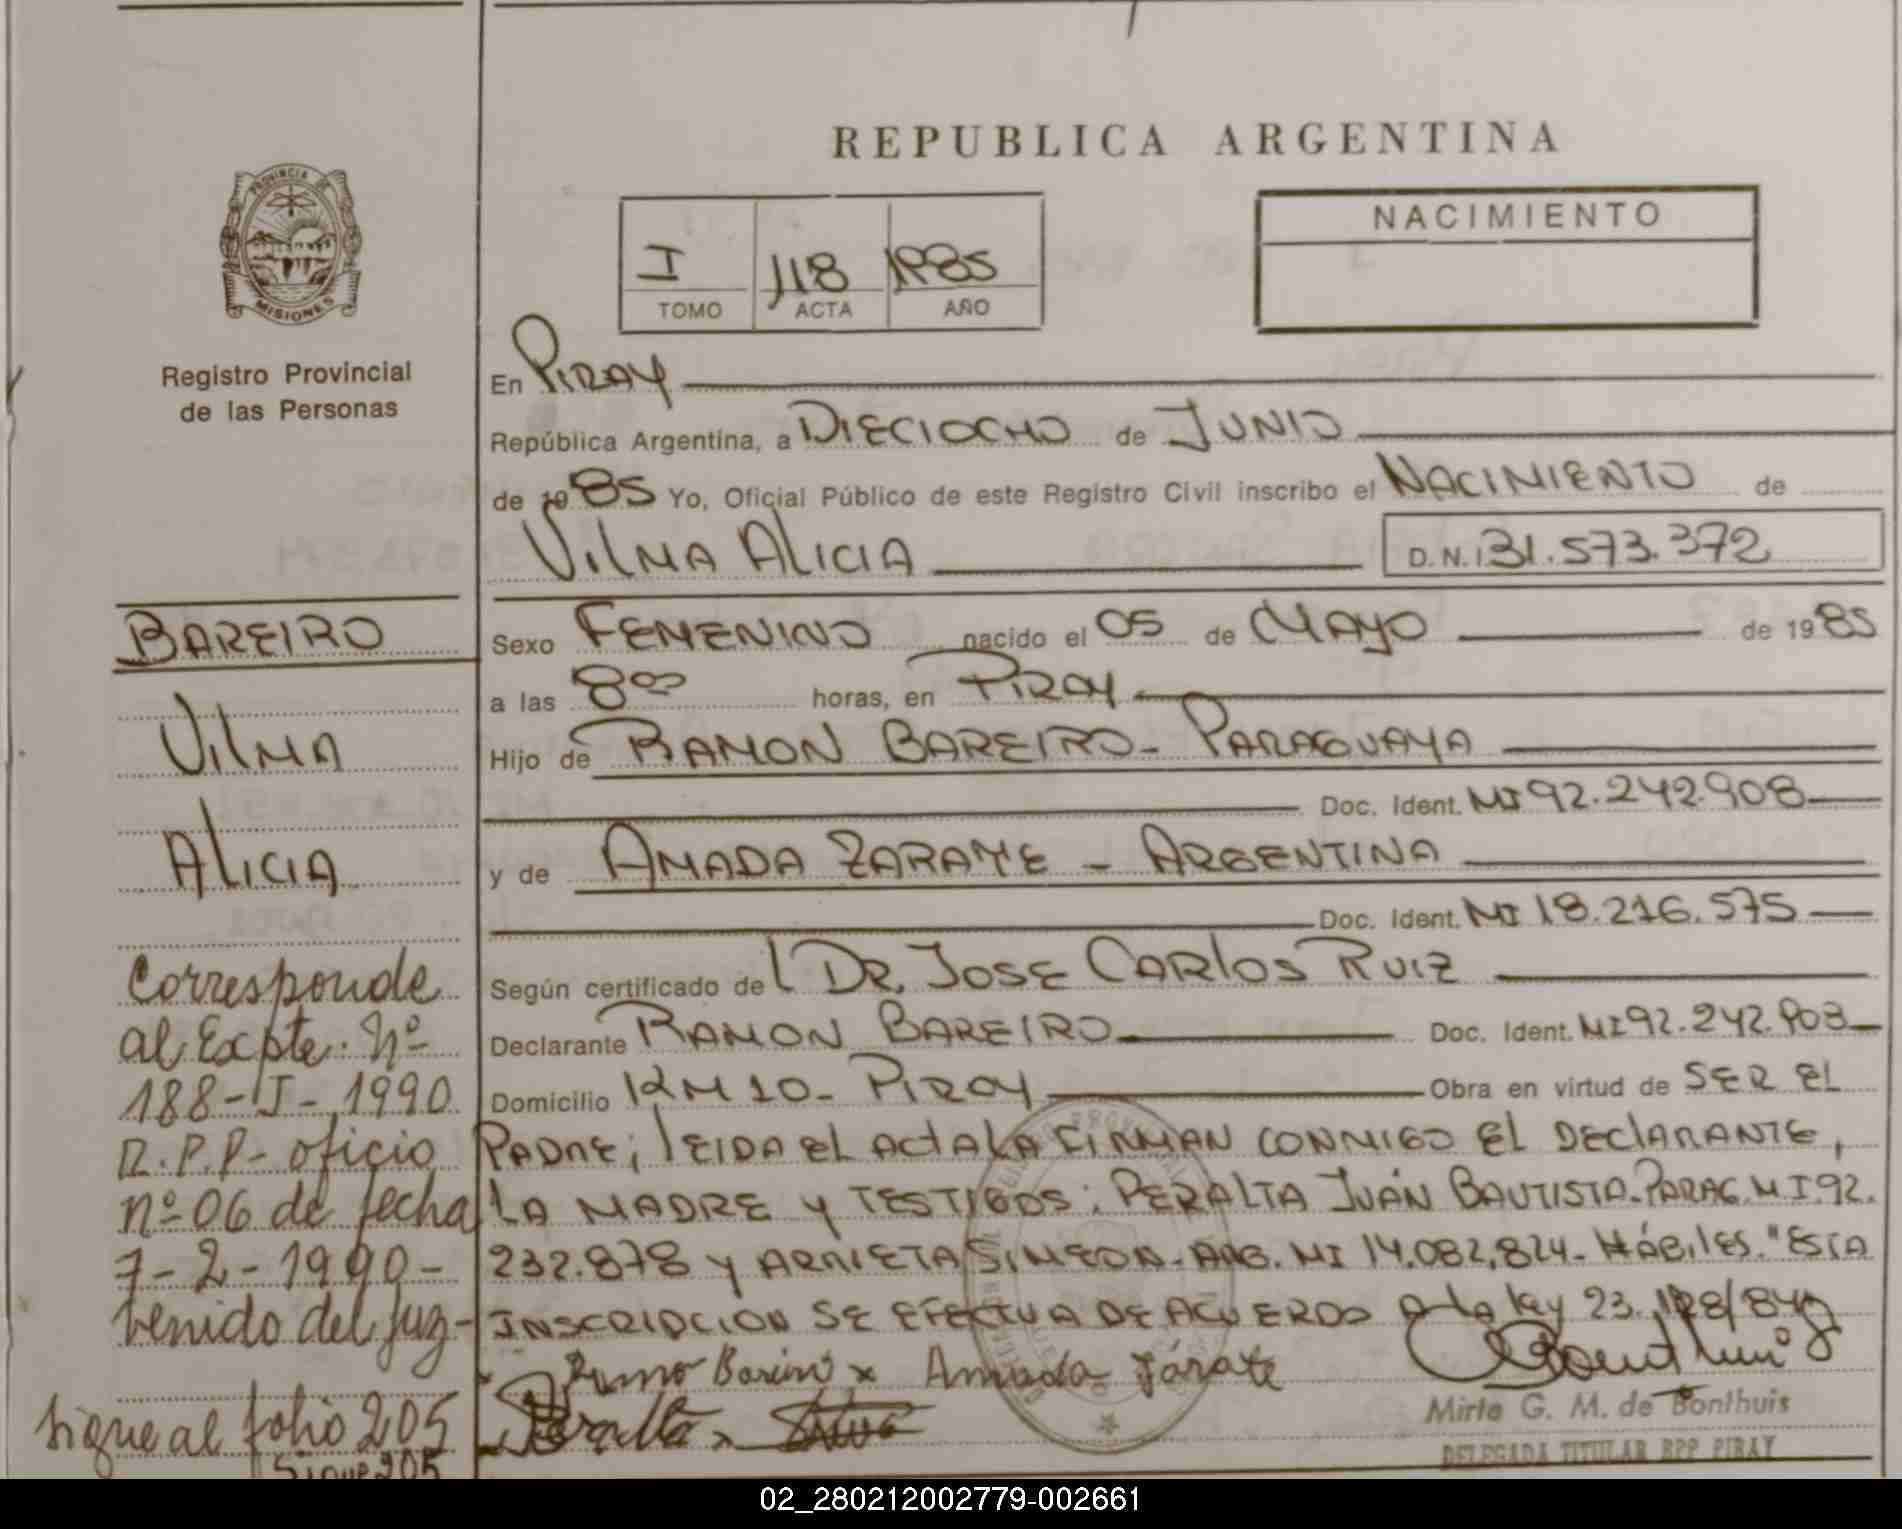 REPUBLICA ARGENTINA
PROVINCIA DE
MISIONES
Registro Provincial
de las Personas
I 118 1985
TOMO ACTA AÑO
NACIMIENTO
En PIRAY
República Argentina, a DIECIOCHO de JUNIO
de 1985 Yo, Oficial Público de este Registro Civil inscribo el NACIMIENTO de
VILMA ALICIA D.N.I 31.573.372
Sexo FEMENINO nacido el 05 de MAYO de 1985
a las 8ºº horas, en PIRAY
Hijo de RAMON BAREIRO - PARAGUAYA
Doc. Ident. MI 92.242.908
y de AMADA ZARATE - ARGENTINA
Doc. Ident. MI 18.216.575
Según certificado de DR. JOSE CARLOS RUIZ
Declarante RAMON BAREIRO Doc. Ident. MI 92.242.903
Domicilio KM 10 - PIRAY Obra en virtud de SER EL
PADRE; LEIDA EL ACTA LA FIRMAN CONMIGO EL DECLARANTE,
LA MADRE Y TESTIGOS: PERALTA JUAN BAUTISTA - PARAG. MI 92.
232.878 Y ARRIETA SIMEON - ARG. MI 14.082.824 - HÁBILES. "ESTA
INSCRIPCION SE EFECTUA DE ACUERDO A la ley 23.128/84"
x Amada Zárate
Peralta x
Mirta G. M. de Bonthuis
DELEGADA TITULAR RPP PIRAY
BAREIRO
VILMA
ALICIA
Corresponde
al Expte. Nº
188-I-1990
R.P.P- oficio
nº 06 de fecha
7-2-1990-
venido del juz-
sigue al folio 205
Sigue 205
02_280212002779-002661